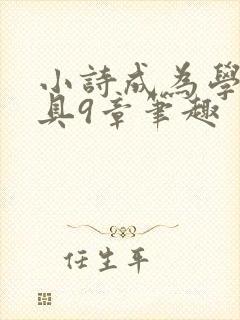 小詩成為學
具9章筆趣
任生平